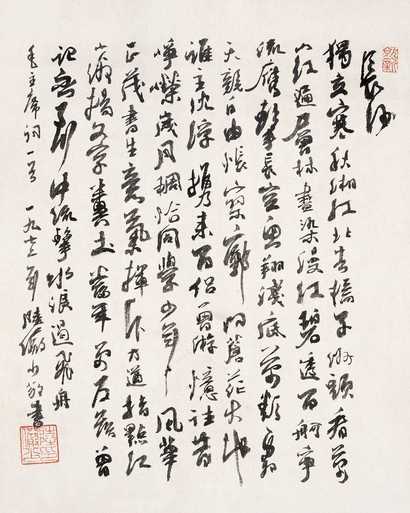 長沙
獨立寒秋湘江北去橘子洲頭看萬
山紅遍層林盡染漫江碧透百舸爭
流鷹擊長空魚翔淺底萬類霜
天競自由悵寥廓問蒼茫大地
誰主沉浮携來百侶曾游憶往昔
崢嶸歲月稠恰同學少年風華
正茂書生意氣揮斥方遒指點江
山激揚文字糞土當年萬户侯曾
記否到中流擊水浪遏飛舟
毛主席詞一首 一九七年 陸儼少敬書